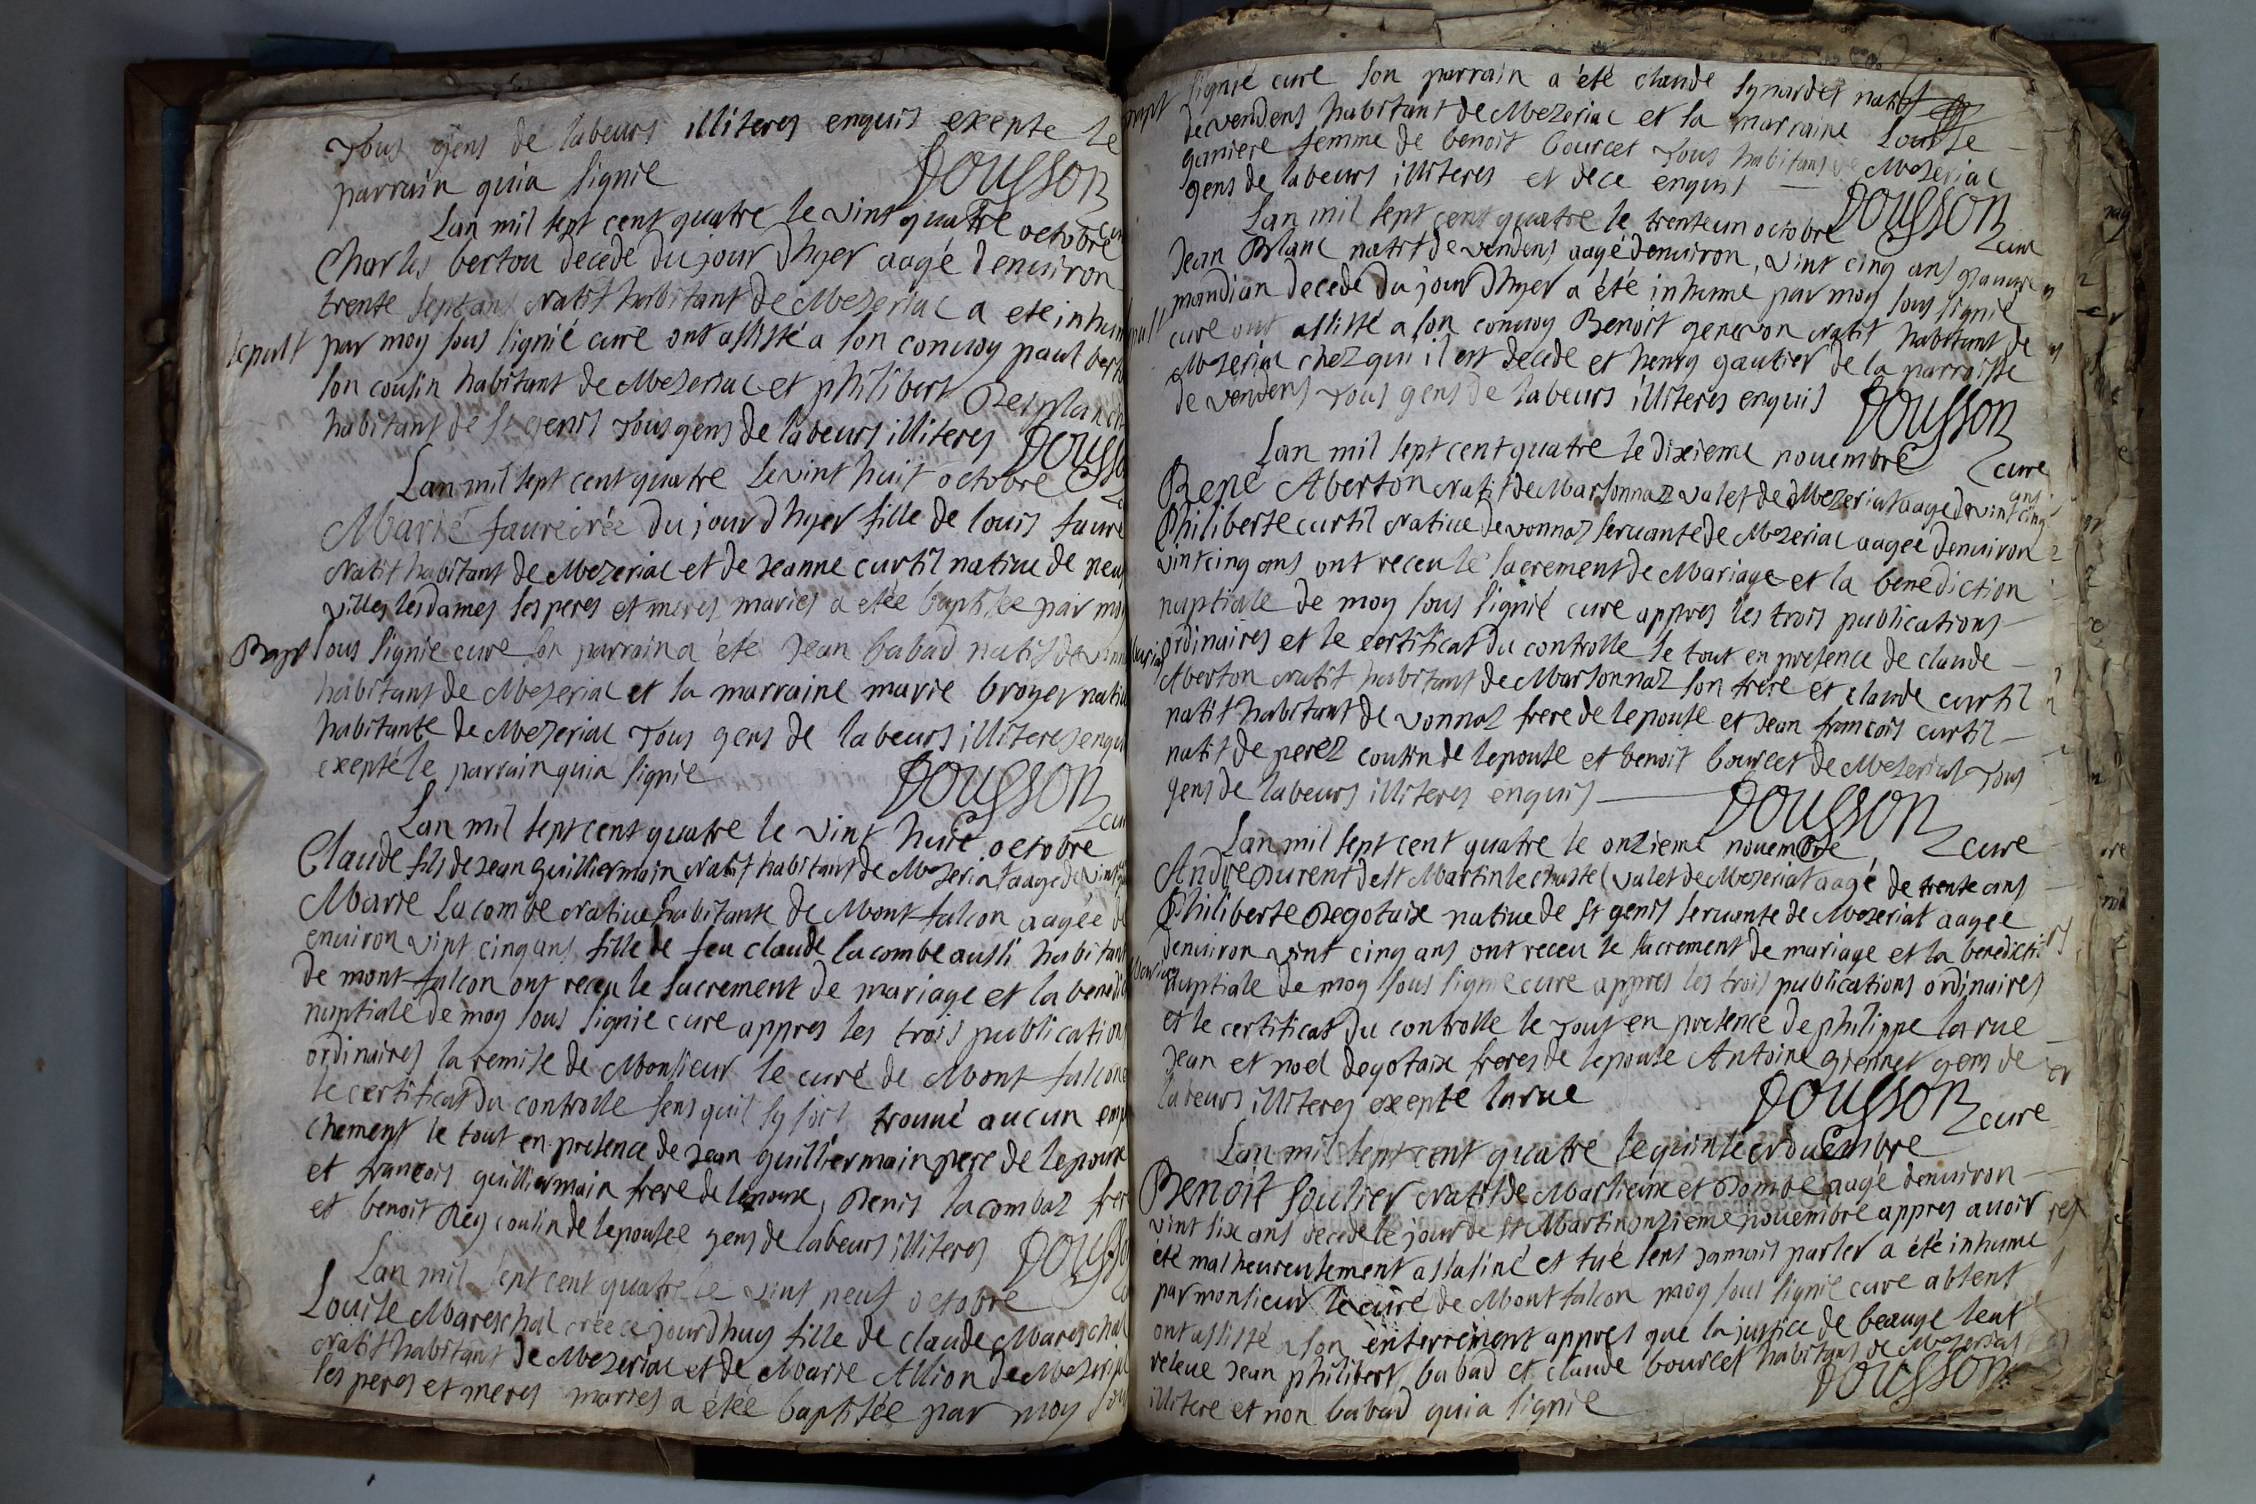 Tous gens de labeurs illiteres enquis exepte le
parrain quia signie Dousson
Lan mil sept cent quatre le vint quatre octobre
Charles bertou decede du jour dhyer aagé denuiron
trente sept ans natif habitant de Mezeriac a ete inhum
par moy sous signié curé ont assisté a son conuoy paul bert
sepult
son cousin habitant de Mezeriac et philibert
habitant de st genis Tous gens de labeurs illiteres Dousso
Lan mil sept cent quatre le vint huit octobre
Marie faure crée du jour dhyer fille de louis faure
natif habitant de Mezeriac et de Jeanne curtil natiue de neu
villes les dames ses peres et meres mariés a étée baptisée par moy
Bapt
sous signie cure son parrain a été Jean babad natif de
habitant de Mezeriac et la marraine marie broyer natiu
habitante de Mezeriac Tous gens de labeurs illiteres enqu
exepté le parrain quia signie Dousson
cu
Lan mil sept cent quatre le vint huit octobre
Claude fils de Jean guilliermain natif habitant de Mezeriat aagé de vint
Marie Lacombe natiue habitante de Mont falcon aagée de
enuiron vint cinq ans fille de feu claude lacombe aussi habitant
de mont falcon ont receu le sacrement de mariage et la benedic
nuptiale de moy sous signie cure appres les trois publication
ordinaires la remise de Monsieur le curé de Mont falcon
le certificat du controlle sens quil sy soit trouué aucun emp
chement le tout en presence de Jean guilliermain pere de lepoux
et francois guilliermain frere de lepoux, Denis lacombaz frer
et benoit Rey cousin de lepousee gens de labeurs illiteres Dousso
Lan mil sept cent quatre le vint neuf octobre
Louise Mareschal créé ce jourdhuy fille de claude Mareschal
natif habitant de Mezeriac et de Marie Allion de Mezeriac
ses peres et meres maries a étée baptisée par moy sou
signié cure son parrain a été claude natif
de vendens habitant de Mezeriac et la marraine Louise
ganiere femme de benoit bourcet Tous habitans de Mezeriac
gens de labeurs illiteres et de ce enquis Dousson
cure
Lan mil sept cent quatre le trente un octobre
Jean Blanc natif de vendens aagé denuiron, vint cinq ans pauure
mandian decede du jour dhyer a été inhume par moy sous signie
cure ont assisté a son conuoy Benoit natif habitant de
Mezeriac chez qui il est decede et henry gautier de la parroisse
de vendens Tous gens de labeurs illiteres enquis Dousson
cure
Lan mil sept cent quatre le dixieme nouembre
René Aberton natif de Marsonnaz valet de Mezeriat aagé de vint cinq ans
Philiberte curtil natiue de vonnaz seruante de Mezeriac aagée denuiron
vint cinq ans ont receu le sacrement de Mariage et la benediction
nuptiale de moy sous signié cure appres les trois publications
ordinaires et le certificat du controlle le tout en presence de claude
Aberton natif habitant de Marsonnaz son frere et claude curtil
natif habitant de vonnaz frere de lepouse et Jean francois curtil
natif de perez cousin de lepouse et benoit bourcet de Mezeriat Tous
gens de labeurs illiteres enquis Dousson
cure
Lan mil sept cent quatre le onzieme nouembre
André Durent de st Martin le chastel valet de Mezeriat aagé de trente ans
Philiberte Degotaix natiue de st genis seruante de Mezeriat aagée
denuiron vint cinq ans ont receu le sacrement de mariage et la benedicti
nuptiale de moy sous signie cure appres les trois publications ordinaires
et le certificat du controlle le Tout en presence de philippe larue
Jean et noel degotaix freres de lepouse Antoine grennet gens de
labeurs illiteres exepté larue Dousson
cure
Lan mil sept cent quatre le quinse nouembre
Benoit soulier natif de Marlieux et Dombe aagé denuiron
vint six ans decede le jour de st Martin onzieme nouembre appres auoir
été malheureusement assasiné et tué sens jamais parler a été inhume
par monsieur le cure de Mont falcon moy sous signie cure absent
ont assisté a son enterrement appres que la justice de beauge leut
releue Jean philibert babad et claude bourcet habitans de Mezeriat
illitere et non babad quia signie Dousson